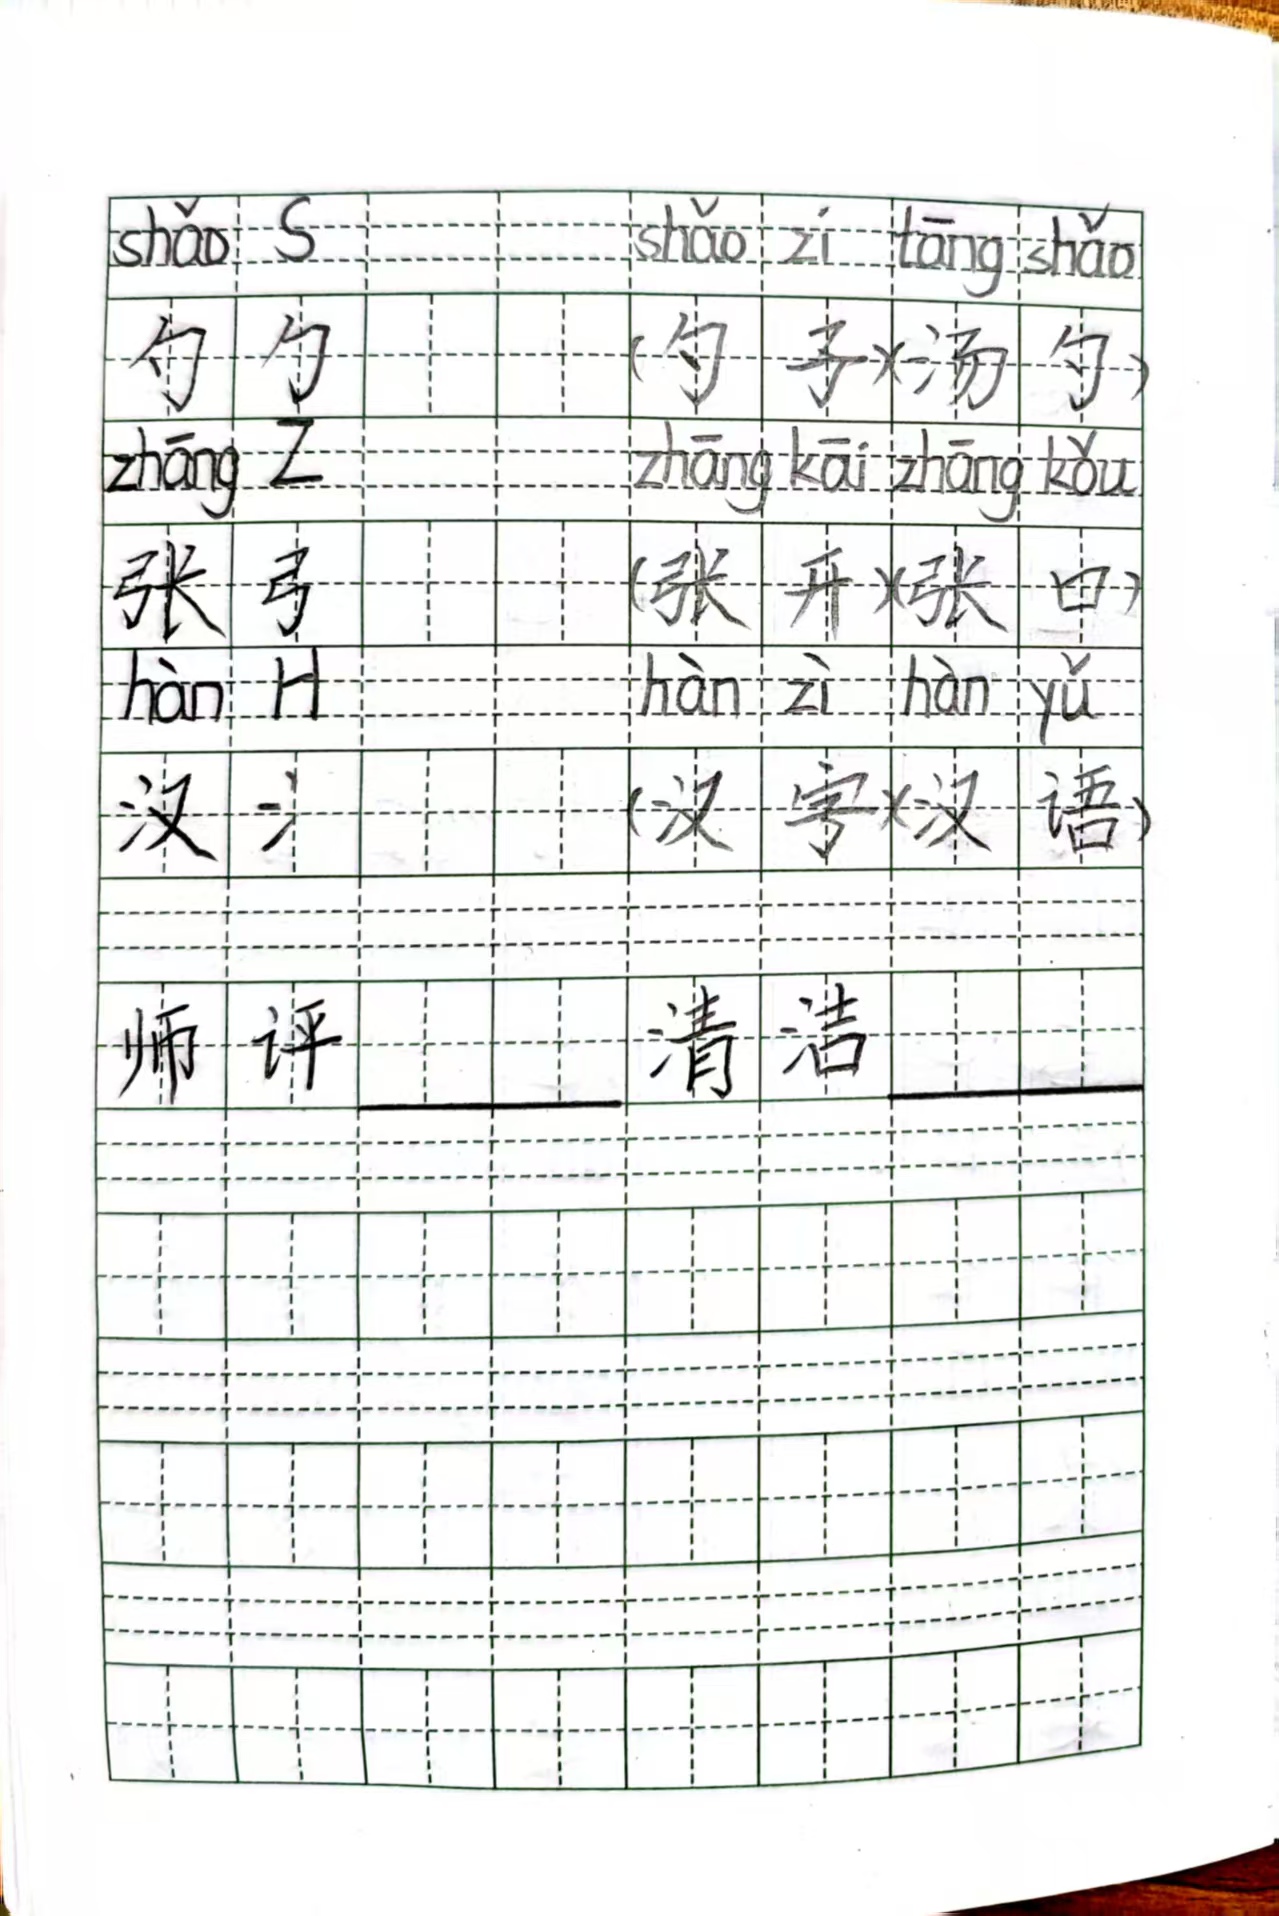 shǎo S shǎo zi tāng shǎo
勺 勹 (勺 子)(汤 勺)
zhāng Z zhāng kāi zhāng kǒu
张 弓 (张 开)(张 口)
hàn H hàn zì hàn yǔ
汉 氵 (汉 字)(汉 语)
师 评 清 洁